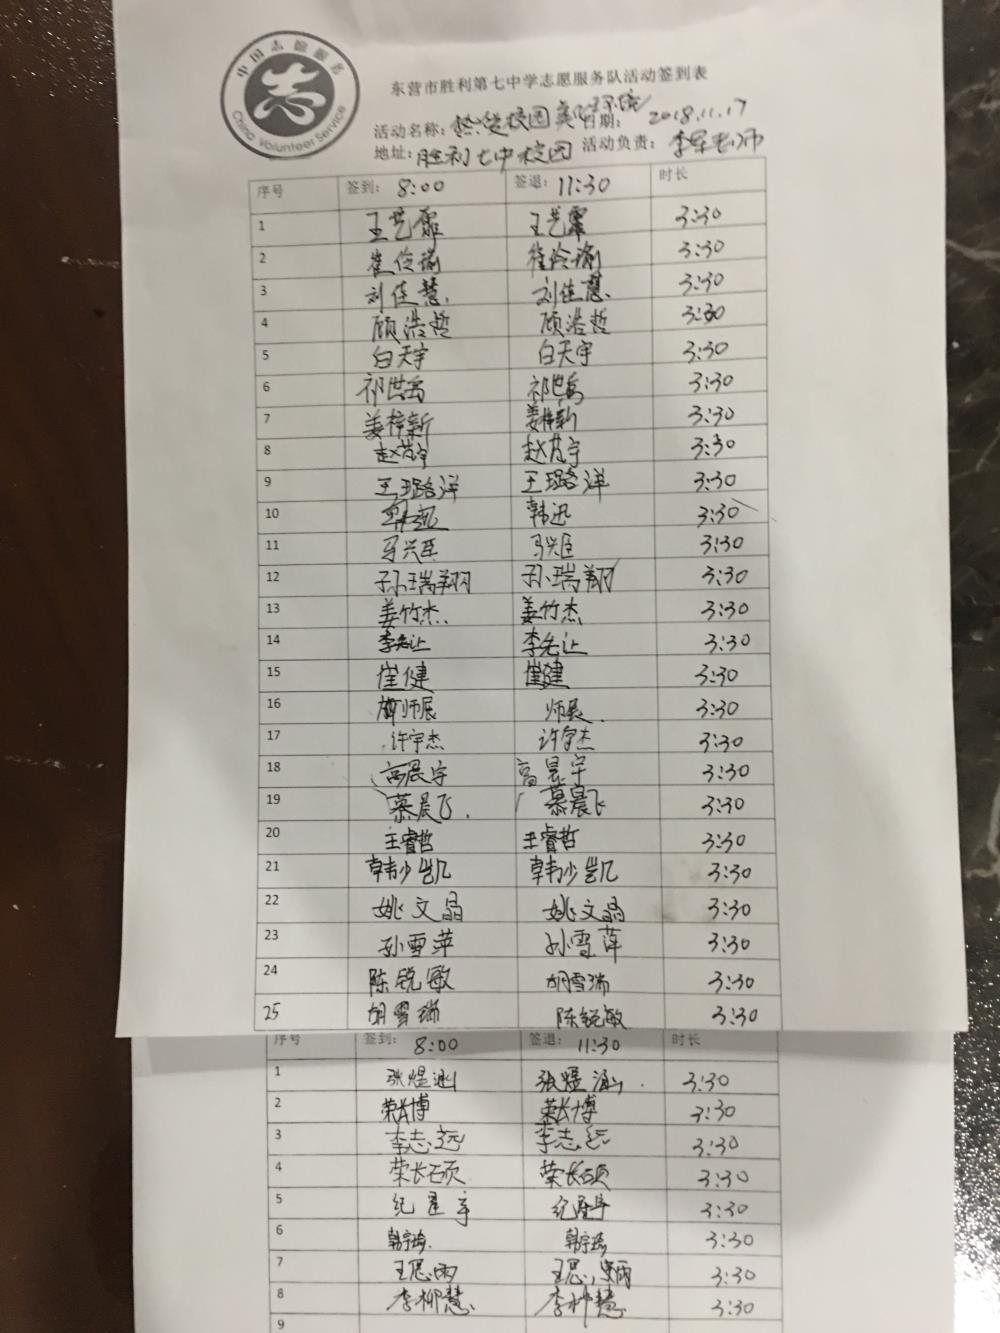 中国志愿服务
志
China Volunteer Service
东营市胜利第七中学志愿服务队活动签到表
活动名称： 校园美化环境 日期： 2018.11.17
地址：胜利七中校园 活动负责： 李军老师
序号 签到： 8:00 签退： 11:30 时长
1 王艺霏 王艺霏 3:30
2 崔伶瑜 崔伶瑜 3:30
3 刘佳慧. 刘佳慧. 3:30
4 顾浩哲 顾浩哲 3:30
5 白天宇 白天宇 3:30
6 祁世禹 祁世禹 3:30
7 姜梓新 姜梓新 3:30
8 赵芃宇 赵芃宇 3:30
9 王璐洋 王璐洋 3:30
10 韩迅 韩迅 3:30
11 马兴臣 马兴臣 3:30
12 孙瑞翔 孙瑞翔 3:30
13 姜竹杰. 姜竹杰 3:30
14 李先让 李先让 3:30
15 崔健 崔健 3:30
16 师展 师展. 3:30
17 许宇杰 许宇杰 3:30
18 高晨宇 高晨宇 3:30
19 慕晨飞. 慕晨飞 3:30
20 王睿哲 王睿哲 3:30
21 韩少凯 韩少凯 3:30
22 姚文晶 姚文晶 3:30
23 孙雪萍 孙雪萍 3:30
24 陈锐敏 胡雪瑞 3:30
25 胡雪瑞 陈锐敏 3:30
序号 签到： 8:00 签退： 11:30 时长
1 张煜涵 张煜涵. 3:30
2 荣长博 荣长博 3:30
3 李志远 李志远 3:30
4 荣长硕 荣长硕 3:30
5 纪星宇 纪 3:30
6 韩宇琦. 韩宇琦 3:30
7 王思雨 王思雨 3:30
8 李柳慧. 李柳慧. 3:30
9